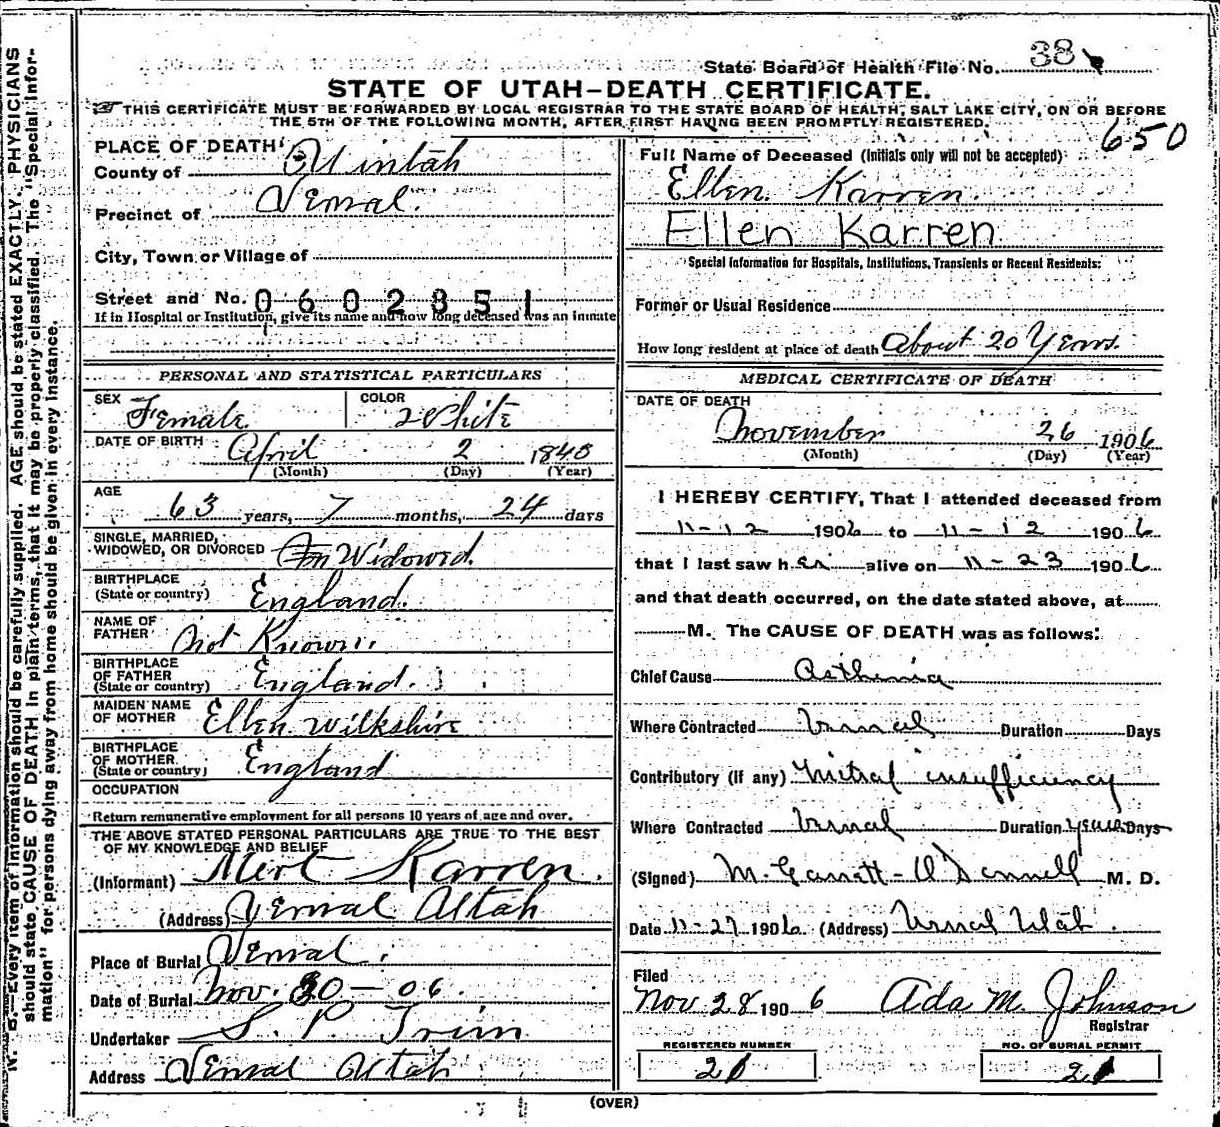 State Board of Health File No. 38
STATE OF UTAH—DEATH CERTIFICATE.
THIS CERTIFICATE MUST BE FORWARDED BY LOCAL REGISTRAR TO THE STATE BOARD OF HEALTH, SALT LAKE CITY, ON OR BEFORE
THE 5TH OF THE FOLLOWING MONTH, AFTER FIRST HAVING BEEN PROMPTLY REGISTERED.
650
PLACE OF DEATH
County of Uintah
Precinct of Vernal.
City, Town or Village of
Street and No. 0602851
If in Hospital or Institution, give its name and how long deceased was an inmate
PERSONAL AND STATISTICAL PARTICULARS
SEX Female
COLOR White
DATE OF BIRTH April 2 1843
(Month) (Day) (Year)
AGE
63 years, 7 months, 24 days
SINGLE, MARRIED,
WIDOWED, OR DIVORCED Widowed.
BIRTHPLACE
(State or country) England.
NAME OF
FATHER Not Known.
BIRTHPLACE
OF FATHER
(State or country) England.
MAIDEN NAME
OF MOTHER Ellen Wilkshire
BIRTHPLACE
OF MOTHER
(State or country) England
OCCUPATION
Return remunerative employment for all persons 10 years of age and over.
THE ABOVE STATED PERSONAL PARTICULARS ARE TRUE TO THE BEST
OF MY KNOWLEDGE AND BELIEF
(Informant) Mert Karren.
(Address) Vernal Utah
Place of Burial Vernal.
Date of Burial Nov. 30 - 06.
Undertaker S. P. Trim
Address Vernal Utah
Full Name of Deceased (Initials only will not be accepted)
Ellen Karren.
Ellen Karren
Special Information for Hospitals, Institutions, Transients or Recent Residents:
Former or Usual Residence
How long resident at place of death About 20 Years.
MEDICAL CERTIFICATE OF DEATH
DATE OF DEATH
November 26 1906
(Month) (Day) (Year)
I HEREBY CERTIFY, That I attended deceased from
11-12 1906 to 11-12 1906
that I last saw her alive on 11-23 1906
and that death occurred, on the date stated above, at
M. The CAUSE OF DEATH was as follows:
Chief Cause Asthenia
Where Contracted Vernal Duration Days
Contributory (if any) Mitral insufficiency
Where Contracted Vernal Duration years Days
(Signed) M. Garrett-O'Donnell M. D.
Date 11-27 1906 (Address) Vernal Utah.
Filed
Nov 28 1906 Ada M. Johnson
Registrar
REGISTERED NUMBER
21
NO. OF BURIAL PERMIT
21
(OVER)
N. B.—Every item of information should be carefully supplied. AGE should be stated EXACTLY. PHYSICIANS
should state CAUSE OF DEATH in plain terms, that it may be properly classified. The "Special Infor-
mation" for persons dying away from home should be given in every instance.